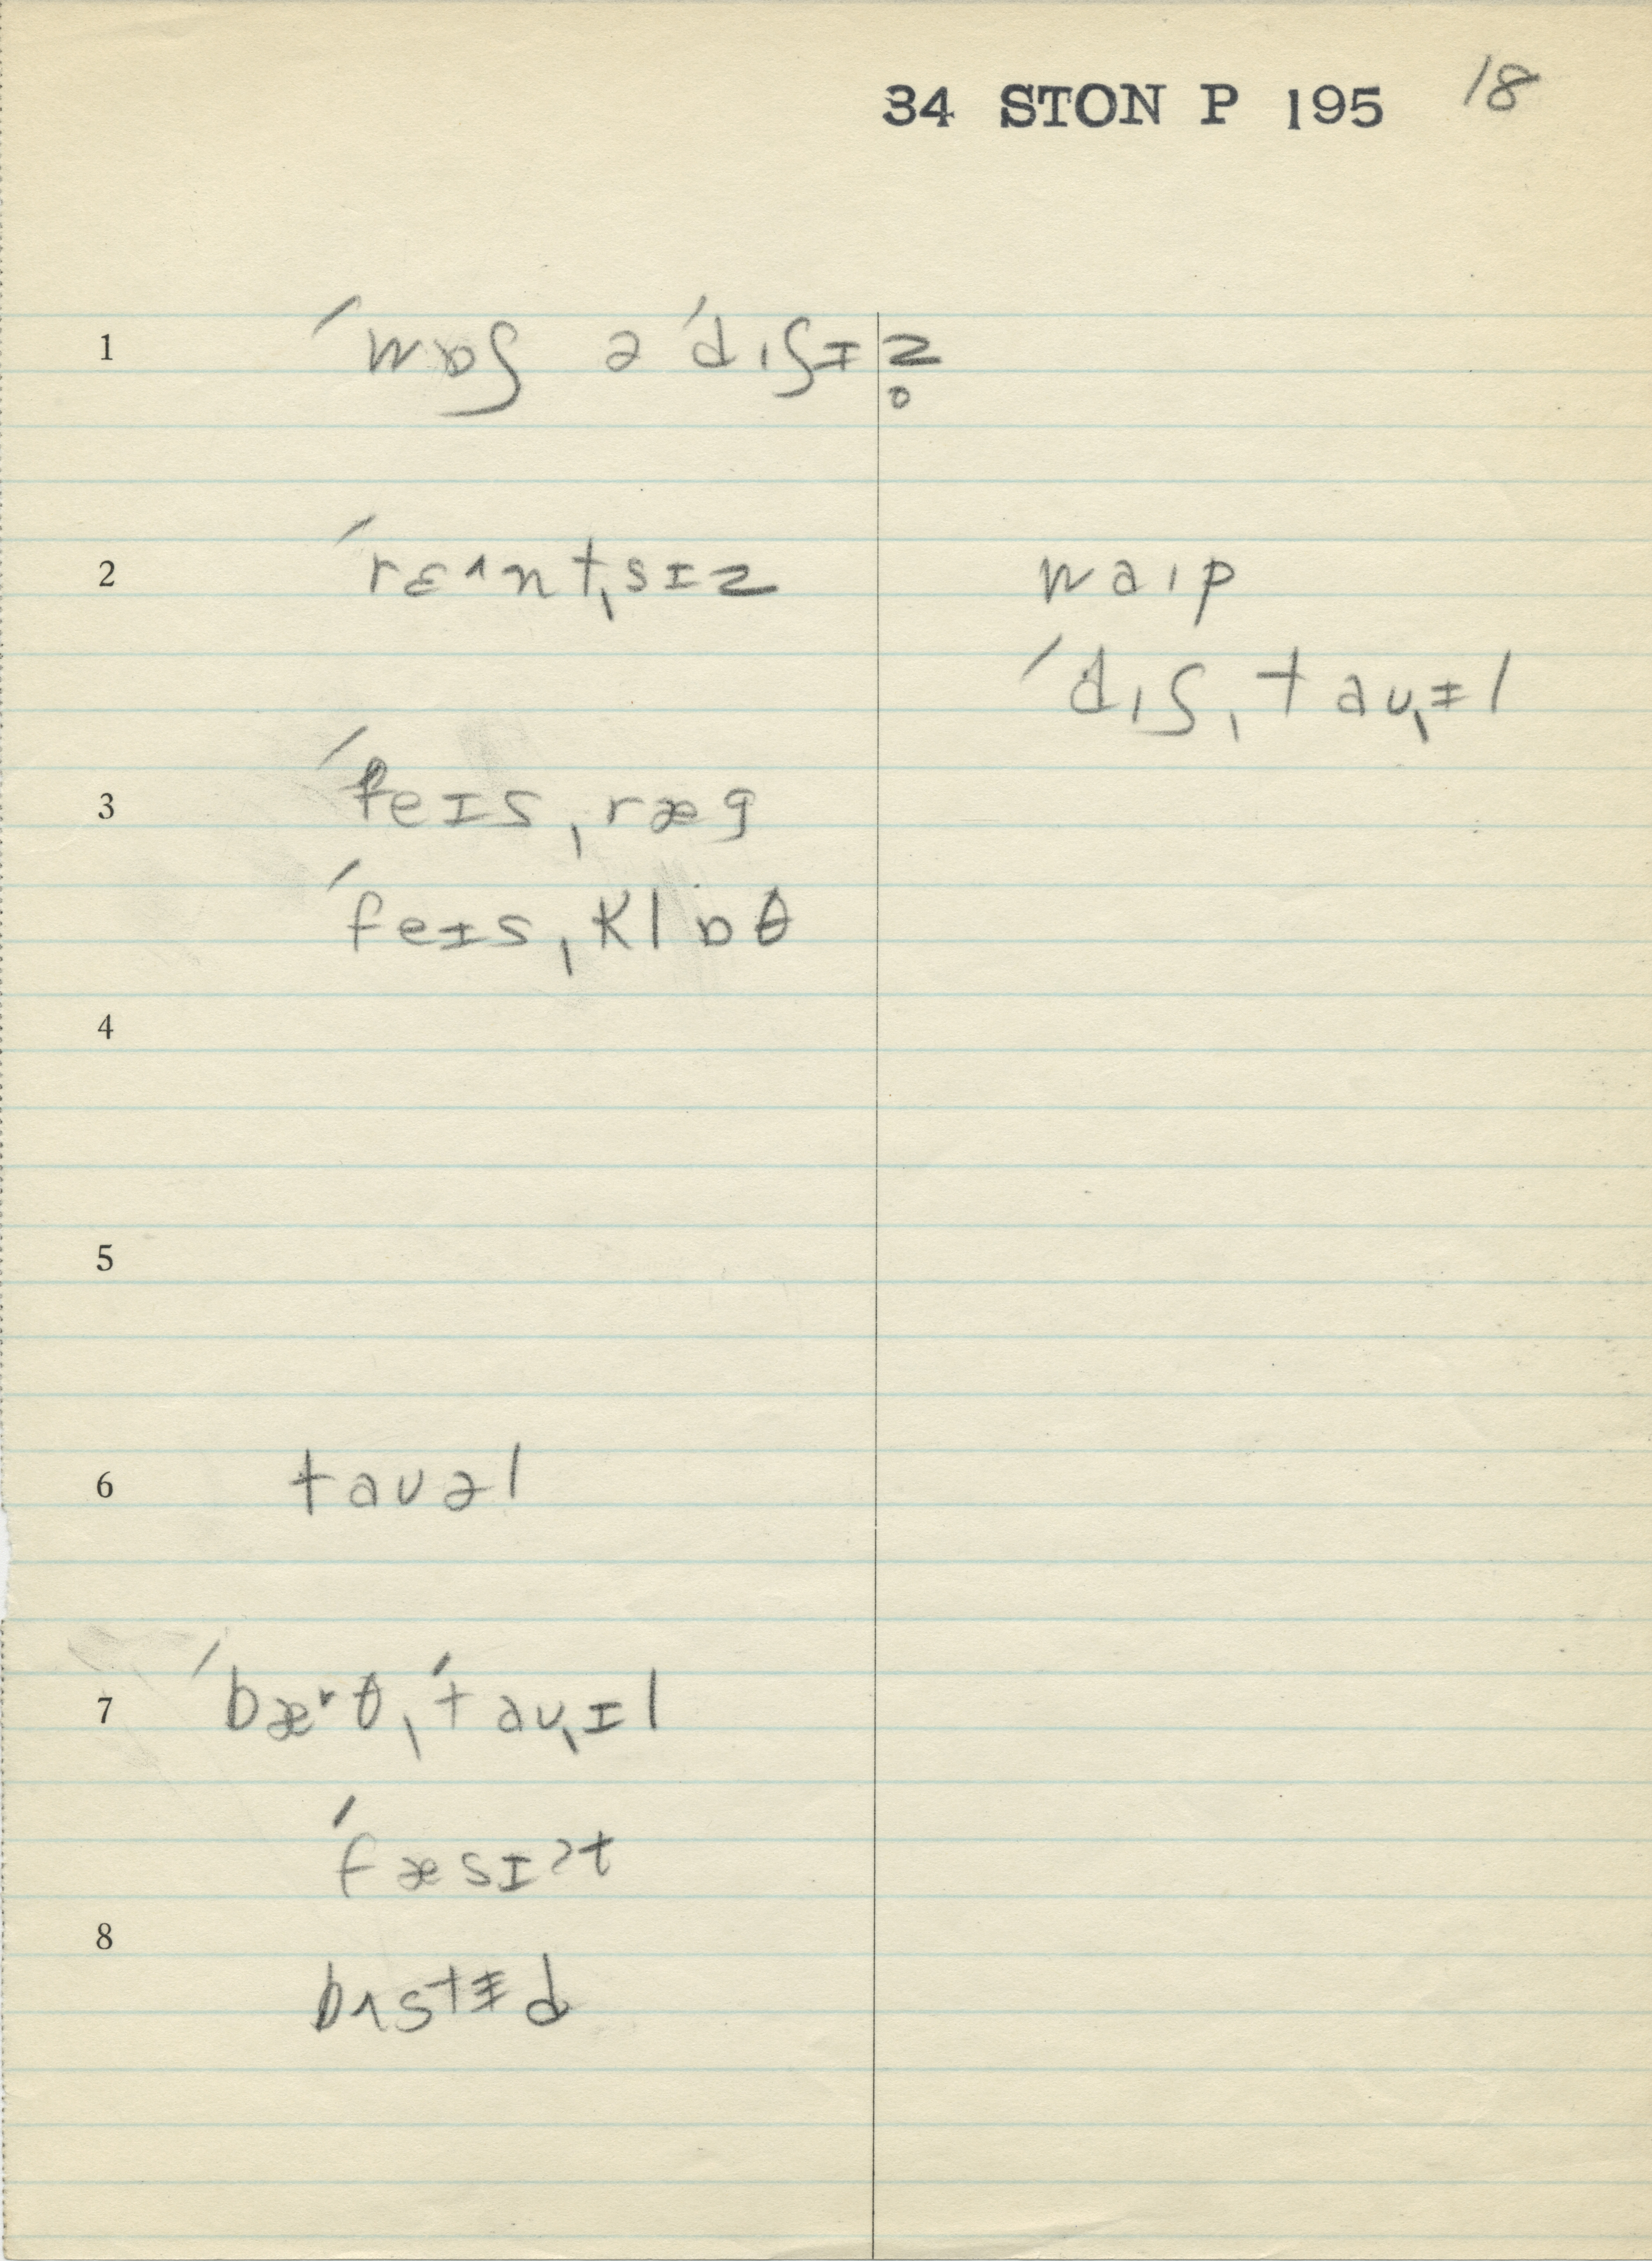 34 STON P 195 18
1 ˈwɒʃ ə ˈdɪʃɪz̥
2 ˈrɛ^nt,sɪz waɪp
ˈdɪʃˌtaʊˌɨl
3 ˈfeɪsˌræg
ˈfeɪsˌklɒθ
4
5
6 taʊəl
7 ˈbæ^rθˌˈtaʊˌɪl
ˈfæsɪʔt
8
bʌstɨd